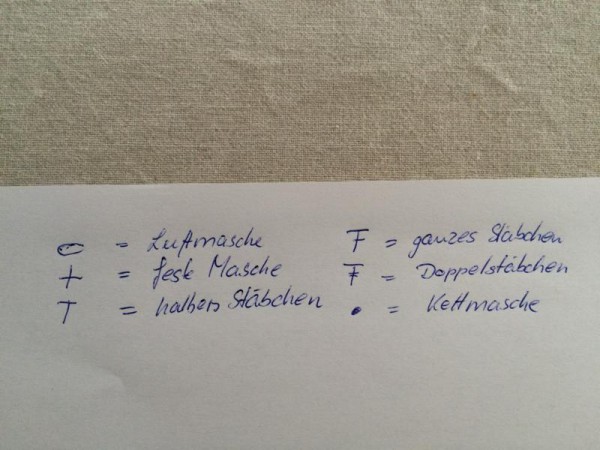 = Luftmasche
+ = feste Masche
T = halbes Stäbchen
= ganzes Stäbchen
= Doppelstäbchen
• = Kettmasche